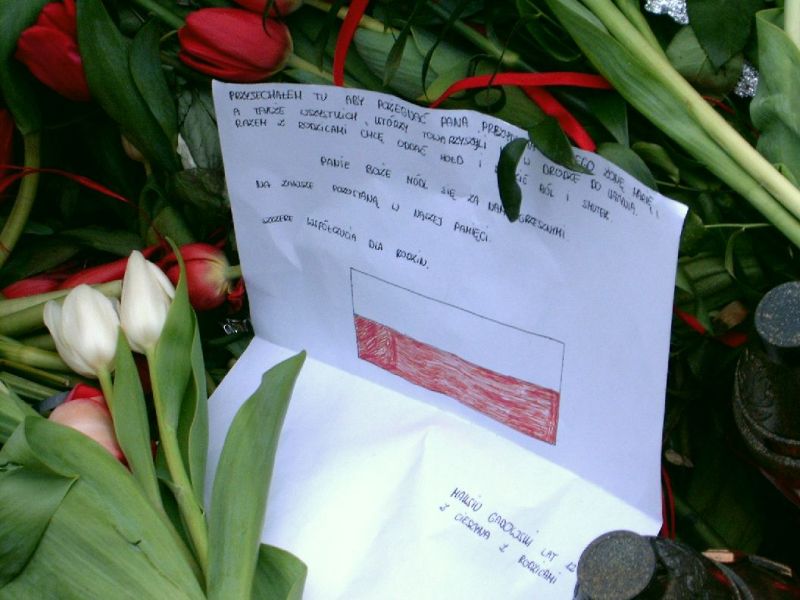 PRZYJECHAŁEM TU ABY POŻEGNAĆ PANA ŻONĘ MARIĘ I
A TAKŻE WSZYSTKICH, KTÓRZY TOWARZYSZYLI W DRODZE DO KATYNIA.
RAZEM Z RODZICAMI CHCĘ ODDAĆ HOŁD I BÓL I SMUTEK.
PANIE BOŻE MÓDL SIĘ ZA NAMI GRZESZNYMI.
NA ZAWSZE POZOSTANĄ W NASZEJ PAMIĘCI.
SZCZERE WSPÓŁCZUCIA DLA RODZIN.
LAT 12
Z CIESZYNA Z RODZICAMI